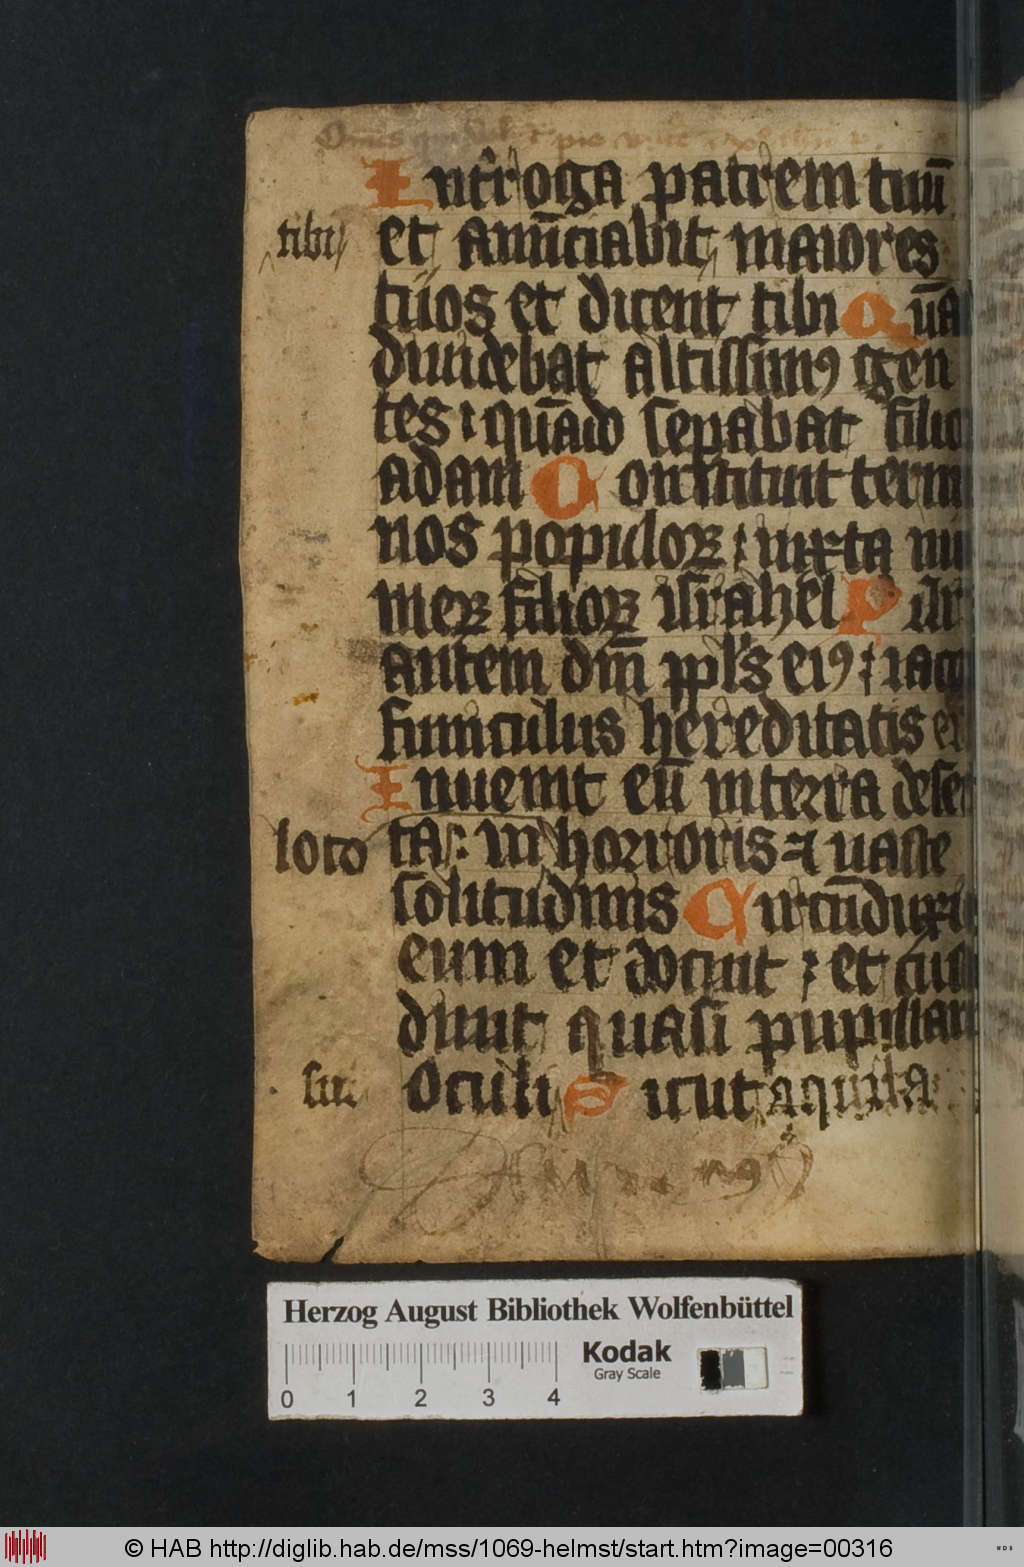 Int̄roga patrem tuū
tibi et anūciabit maiores
tuos et dicent tibi Qūa
diuidebat altissimꝰ gen
tes ⁊ quāđo sep̄abat filio
adam Constituit termi
nos populoꝝ iuxta nu
meꝝ filioꝝ isrl̄ahel Par
autem dn̄i ppl's eiꝰ iaco
funiculus hereditatis ei
Inuenit eū in terra deser
loco ta in horroris ⁊ uaste
solitudinis Circūduxit
eum et docuit et cus
diuit quasi pupillam
sui oculi Sicut aquila
Herzog August Bibliothek Wolfenbüttel
Kodak
Gray Scale
0 1 2 3 4
© HAB http://diglib.hab.de/mss/1069-helmst/start.htm?image=00316